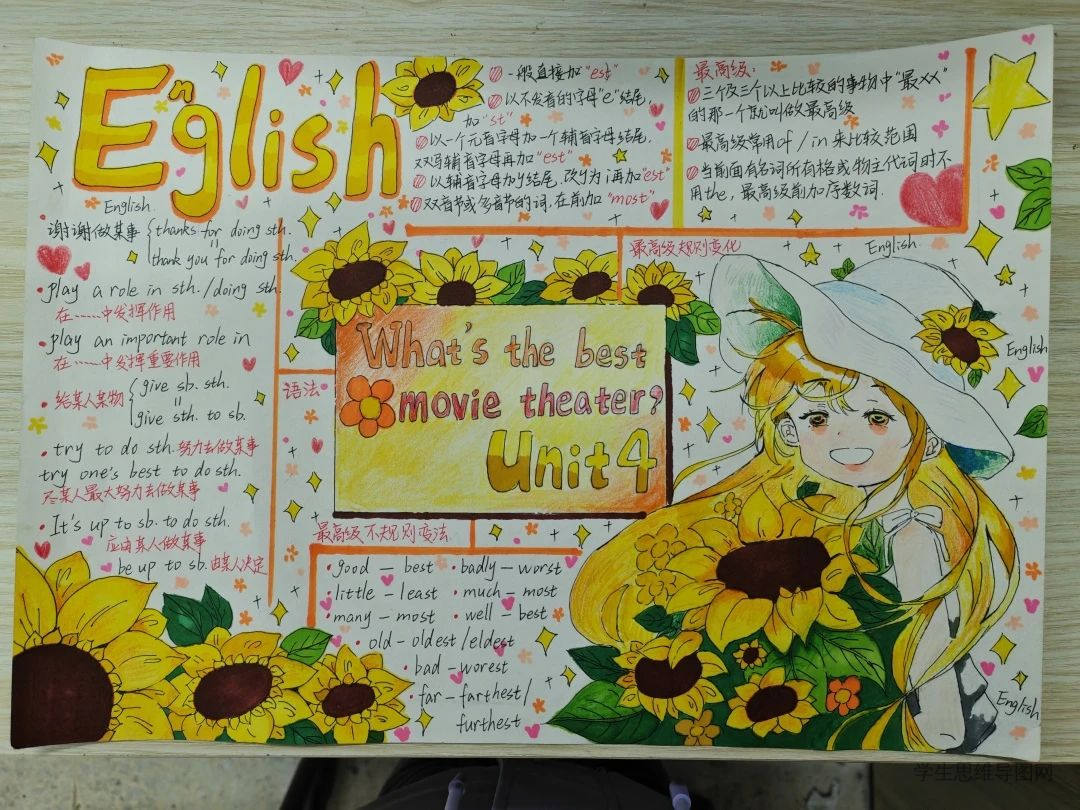 English
English.
一般直接加"est"
以不发音的字母"e"结尾,
加"st"
以一个元音字母加一个辅音字母结尾,
双写辅音字母再加"est"
以辅音字母加y结尾,改y为i再加"est"
双音节或多音节的词,在前加"most"
最高级:
三个及三个以上比较的事物中"最××"
的那一个就叫做最高级
最高级常用of/in来比较范围
当前面有名词所有格或物主代词时不
用the,最高级前加序数词.
谢谢做某事 thanks for doing sth.
thank you for doing sth.
play a role in sth./doing sth
在……中发挥作用
play an important role in
在……中发挥重要作用
给某人某物 give sb. sth.
give sth. to sb.
try to do sth. 努力去做某事
try one's best to do sth.
尽某人最大努力去做某事
It's up to sb. to do sth.
应由某人做某事
be up to sb. 由某人决定
语法
最高级规则变化
English.
What's the best
movie theater?
Unit 4
English
最高级不规则变法
good — best
badly — worst
little — least
much — most
many — most
well — best
old - oldest/eldest
bad - worest
far - farthest/
furthest
English
学生思维导图网